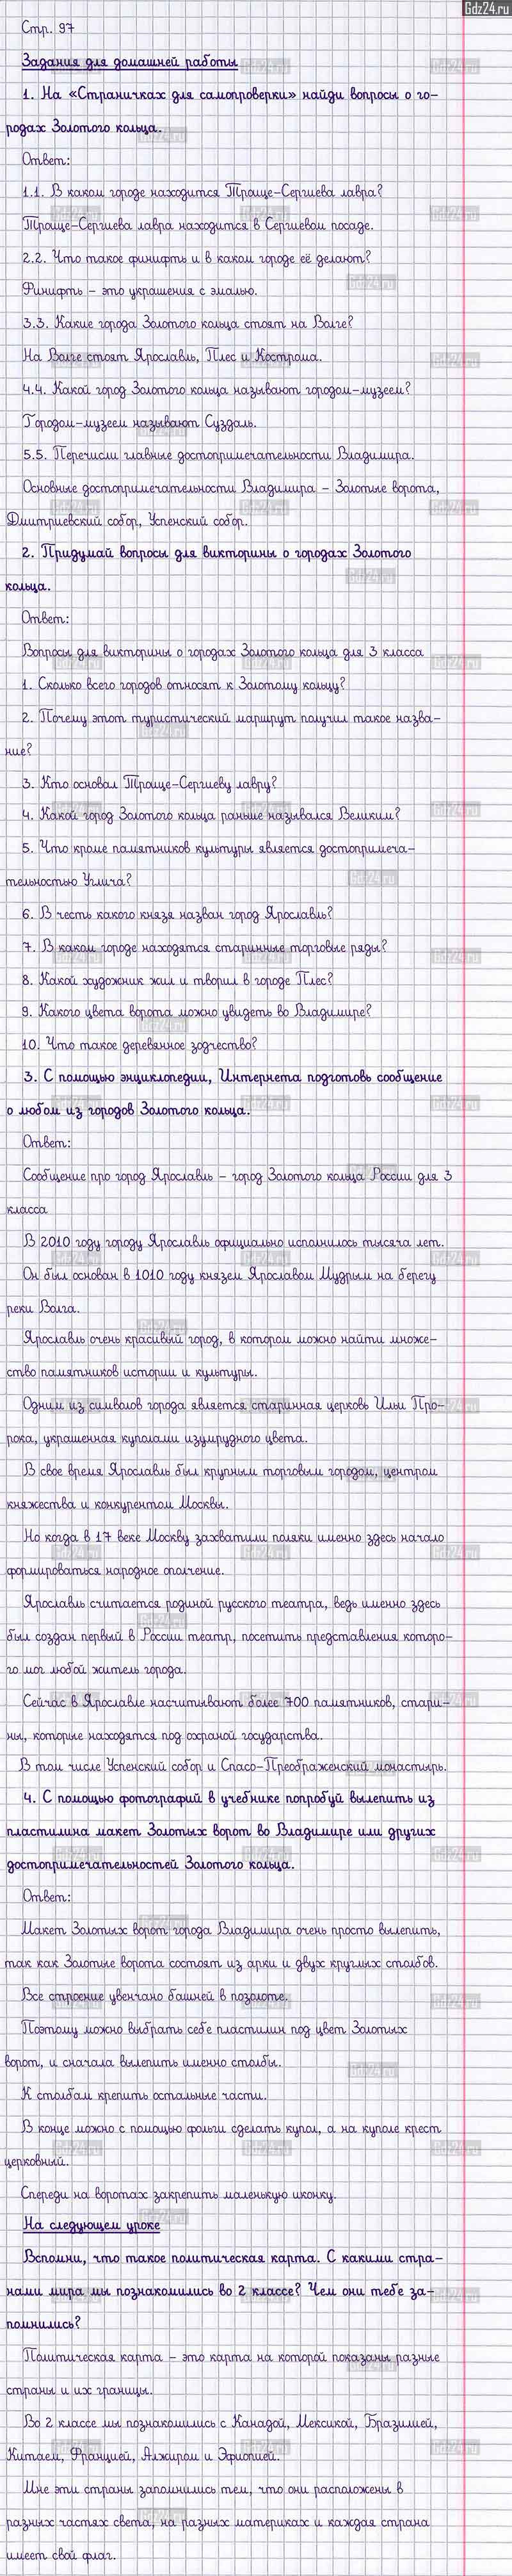 Gdz24.ru
Стр. 97
Задания для домашней работы
1. На «Страничках для самопроверки» найди вопросы о го-
родах Золотого кольца.
Ответ:
1.1. В каком городе находится Троице-Сергиева лавра?
Троице-Сергиева лавра находится в Сергиевом посаде.
2.2. Что такое финифть и в каком городе её делают?
Финифть – это украшения с эмалью.
3.3. Какие города Золотого кольца стоят на Волге?
На Волге стоят Ярославль, Плес и Кострома.
4.4. Какой город Золотого кольца называют городом-музеем?
Городом-музеем называют Суздаль.
5.5. Перечисли главные достопримечательности Владимира.
Основные достопримечательности Владимира – Золотые ворота,
Дмитриевский собор, Успенский собор.
2. Придумай вопросы для викторины о городах Золотого
кольца.
Ответ:
Вопросы для викторины о городах Золотого кольца для 3 класса
1. Сколько всего городов относят к Золотому кольцу?
2. Почему этот туристический маршрут получил такое назва-
ние?
3. Кто основал Троице-Сергиеву лавру?
4. Какой город Золотого кольца раньше назывался Великим?
5. Что кроме памятников культуры является достопримеча-
тельностью Углича?
6. В честь какого князя назван город Ярославль?
7. В каком городе находятся старинные торговые ряды?
8. Какой художник жил и творил в городе Плес?
9. Какого цвета ворота можно увидеть во Владимире?
10. Что такое деревянное зодчество?
3. С помощью энциклопедии, Интернета подготовь сообщение
о любом из городов Золотого кольца.
Ответ:
Сообщение про город Ярославль – город Золотого кольца России для 3
класса
В 2010 году городу Ярославль официально исполнилось тысяча лет.
Он был основан в 1010 году князем Ярославом Мудрым на берегу
реки Волга.
Ярославль очень красивый город, в котором можно найти множе-
ство памятников истории и культуры.
Одним из символов города является старинная церковь Ильи Про-
рока, украшенная куполами изумрудного цвета.
В свое время Ярославль был крупным торговым городом, центром
княжества и конкурентом Москвы.
Но когда в 17 веке Москву захватили поляки именно здесь начало
формироваться народное ополчение.
Ярославль считается родиной русского театра, ведь именно здесь
был создан первый в России театр, посетить представления которо-
го мог любой житель города.
Сейчас в Ярославле насчитывают более 700 памятников, стари-
ны, которые находятся под охраной государства.
В том числе Успенский собор и Спасо-Преображенский монастырь.
4. С помощью фотографий в учебнике попробуй вылепить из
пластилина макет Золотых ворот во Владимире или других
достопримечательностей Золотого кольца.
Ответ:
Макет Золотых ворот города Владимира очень просто вылепить,
так как Золотые ворота состоят из арки и двух круглых столбов.
Все строение увенчано башней в позолоте.
Поэтому можно выбрать себе пластилин под цвет Золотых
ворот, и сначала вылепить именно столбы.
К столбам крепить остальные части.
В конце можно с помощью фольги сделать купол, а на куполе крест
церковный.
Спереди на воротах закрепить маленькую иконку.
На следующем уроке
Вспомни, что такое политическая карта. С какими стра-
нами мира мы познакомились во 2 классе? Чем они тебе за-
помнились?
Политическая карта – это карта на которой показаны разные
страны и их границы.
Во 2 классе мы познакомились с Канадой, Мексикой, Бразилией,
Китаем, Францией, Алжиром и Эфиопией.
Мне эти страны запомнились тем, что они расположены в
разных частях света, на разных материках и каждая страна
имеет свой флаг.